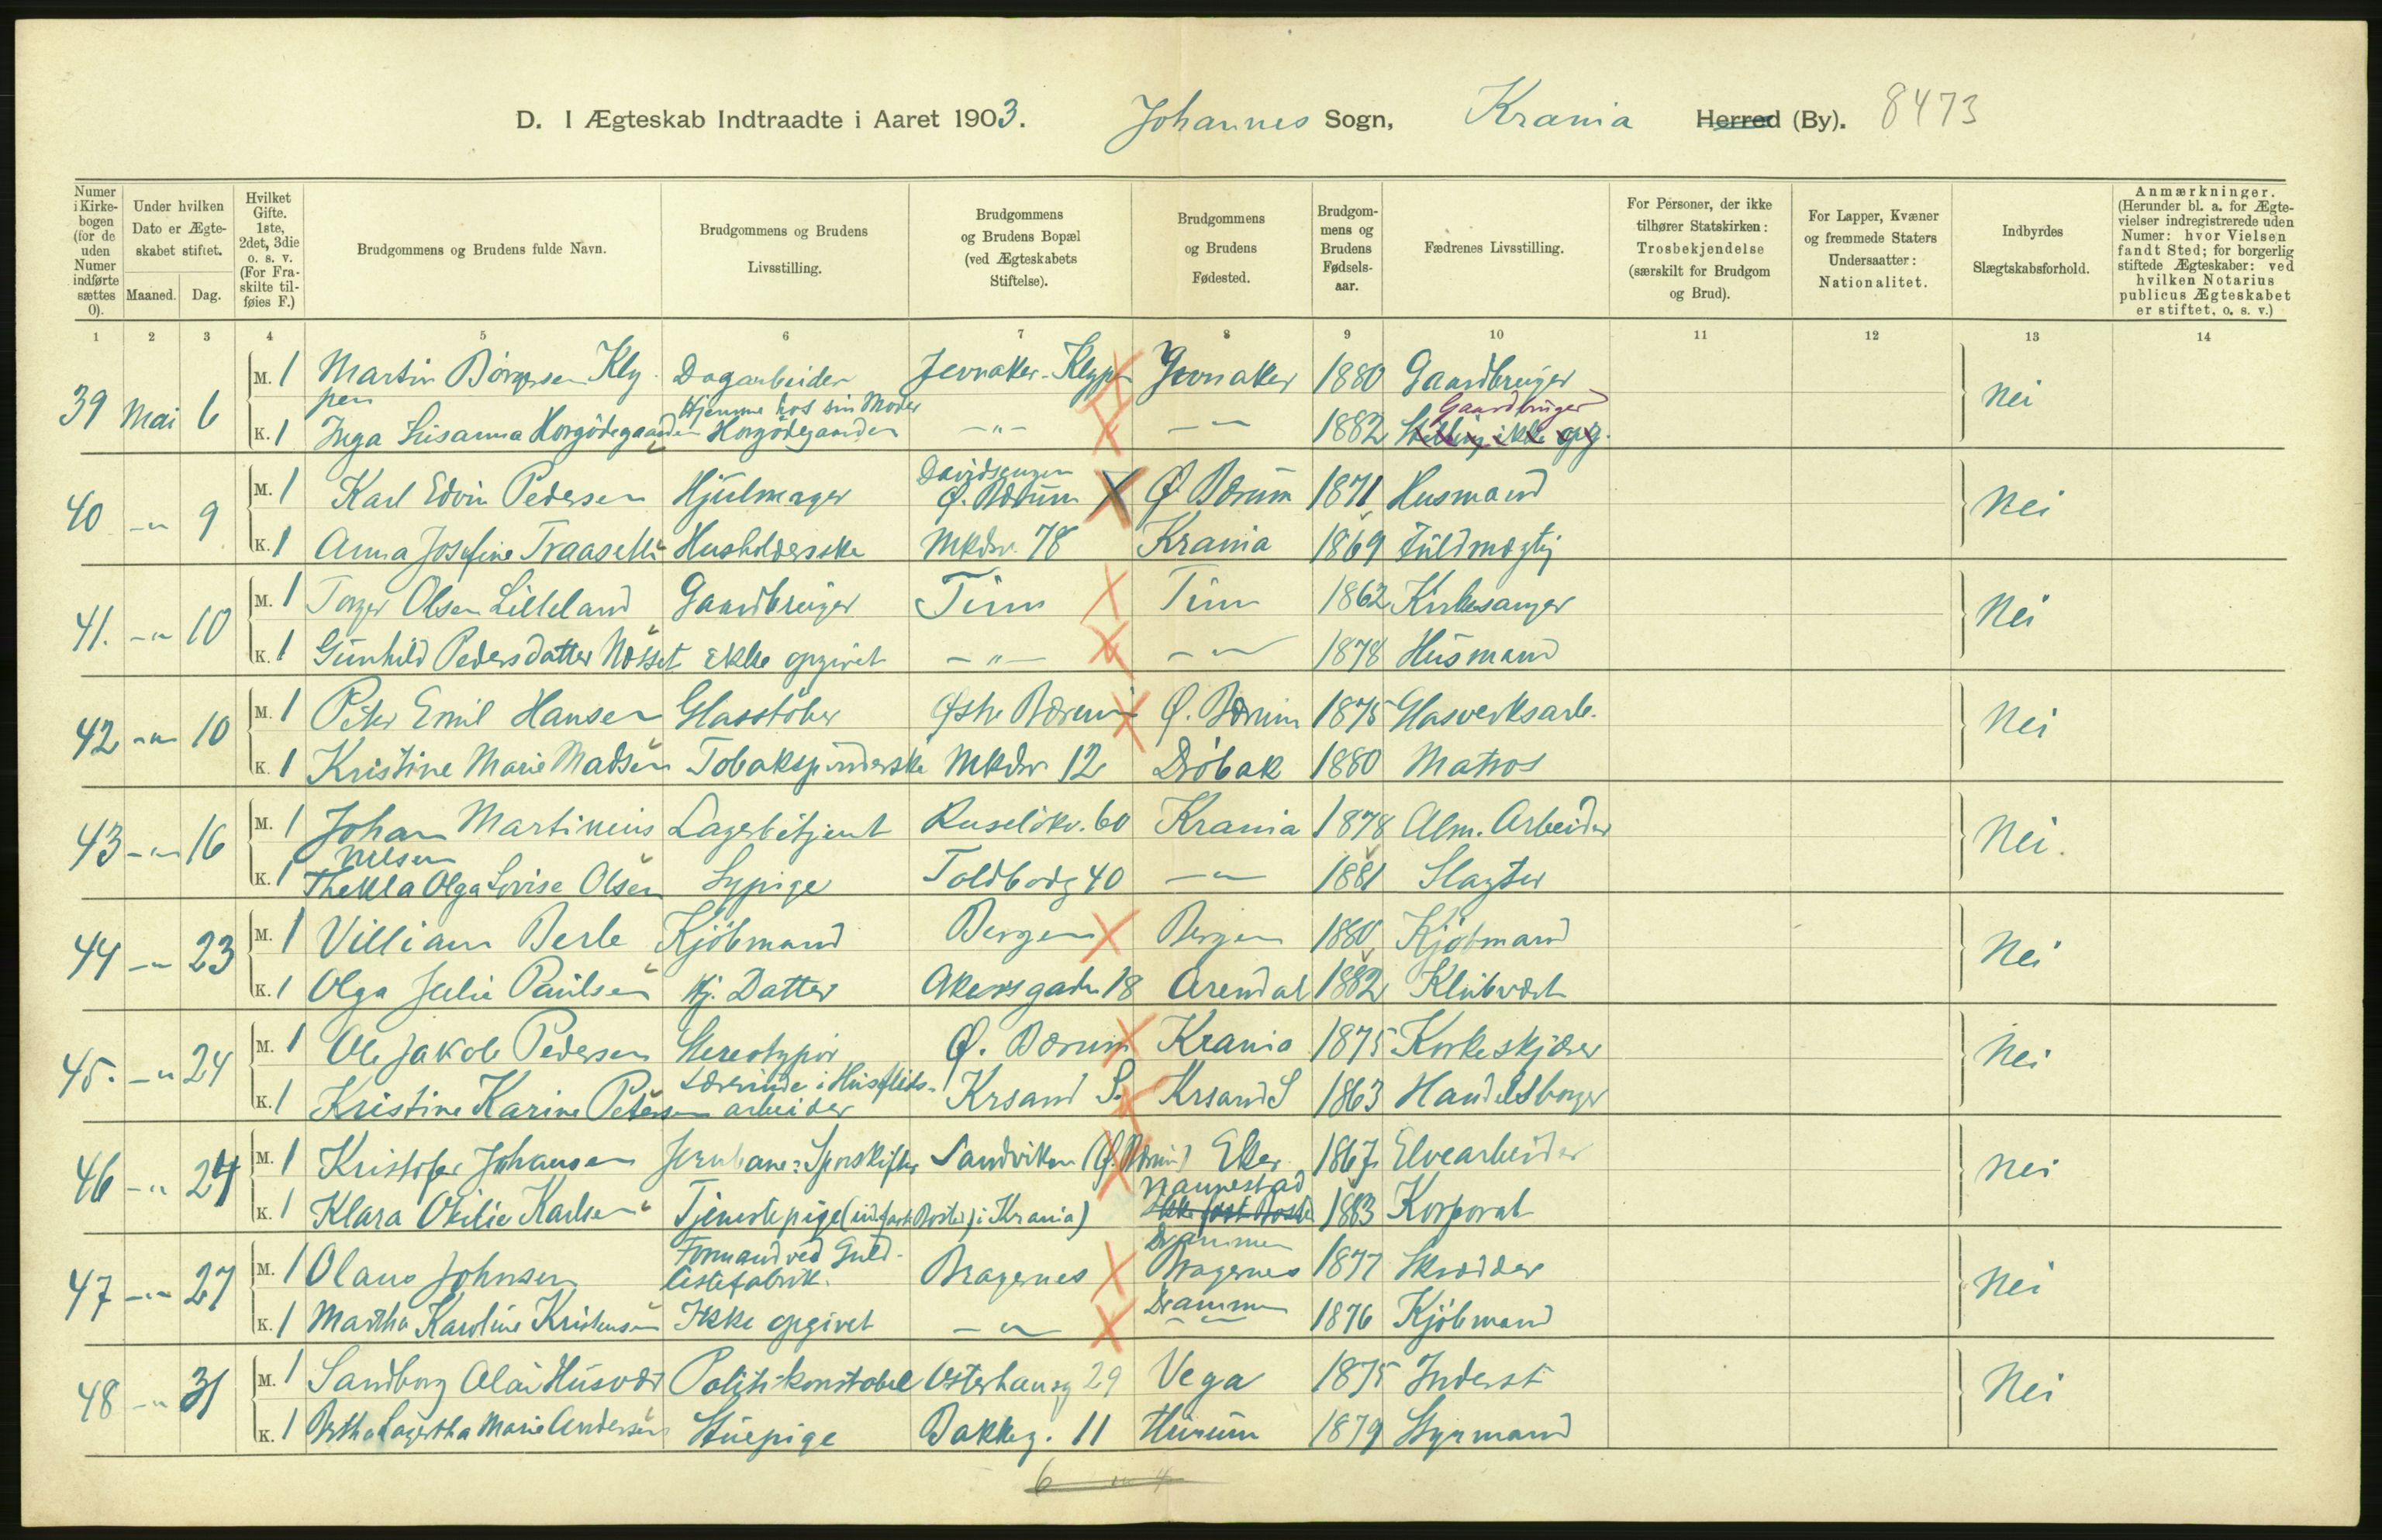 D. I Ægteskab Indtraadte i Aaret 1903. Johannes Sogn, Krania Herred (By). 8473
Numer i Kirkebogen (for de uden Numer indførte sættes 0).
Under hvilken Dato er Ægteskabet stiftet.
Maaned. Dag.
Hvilket Gifte. 1ste, 2det, 3die o. s. v. (For Fraskilte tilføies F.)
Brudgommens og Brudens fulde Navn.
Brudgommens og Brudens Livsstilling.
Brudgommens og Brudens Bopæl (ved Ægteskabets Stiftelse).
Brudgommens og Brudens Fødested.
Brudgommens og Brudens Fødselsaar.
Fædrenes Livsstilling.
For Personer, der ikke tilhører Statskirken: Trosbekjendelse (særskilt for Brudgom og Brud).
For Lapper, Kvæner og fremmede Staters Undersaatter: Nationalitet.
Indbyrdes Slægtskabsforhold.
Anmærkninger. (Herunder bl. a. for Ægtevielser indregistrerede uden Numer: hvor Vielsen fandt Sted; for borgerlig stiftede Ægteskaber: ved hvilken Notarius publicus Ægteskabet er stiftet, o. s. v.)
1 2 3 4 5 6 7 8 9 10 11 12 13 14
39 Mai 6 M. 1 Martin Børgersen Klyppen Dagarbeider Jevnaker-Klyp Jevnaker 1880 Gaardbruger Nei
K. 1 Inga Susanna Horgødegaarden Hjemme hos sin Moder Horgødegaarden -"- -"- 1882 Stilling ikke opg. Gaardbruger
40 -"- 9 M. 1 Karl Edvin Pedersen Hjulmager Ø. Bærum Ø Bærum 1871 Husmand Nei
K. 1 Anna Josefine Traaselli Husholderske Mkdsv. 78 Krania 1869 Fuldmægtig
41. -"- 10 M. 1 Torger Olsen Lilleland Gaardbruger Tinn Tinn 1862 Kirkesanger Nei
K. 1 Gunhild Pedersdatter Næsset Ikke opgivet -"- -"- 1878 Husmand
42 -"- 10 M. 1 Peter Emil Hansen Glasstøber Østre Bærum Ø. Bærum 1875 Glasverksarb. Nei
K. 1 Kristine Marie Madsen Tobakspinderske Mkdsv 12 Drøbak 1880 Matros
43 -"- 16 M. 1 Johan Martinius Nilsen Lagerbetjent Ruseløkv. 60 Krania 1878 Alm. Arbeider Nei.
K. 1 Thekla Olga Lovise Olsen Sypige Toldbodg 40 -"- 1881 Slagter
44 -"- 23 M. 1 Villiam Berle Kjøbmand Bergen Bergen 1880 Kjøbmand Nei
K. 1 Olga Julie Paulsen Hj. Datter Akersgaden 18 Arendal 1882 Klubvært
45. -"- 24 M. 1 Ole Jakob Pedersen Stereotypør Ø. Bærum Krania 1875 Korkeskjærer Nei
K. 1 Kristine Karine Petersen Lærerinde i Husflidsarbeider Krsand S. Krsand S 1863 Handelsborger
46 -"- 24 M. 1 Kristofer Johansen Jernbane-Sporskifter Sandviken (Ø. Bærum) Eker 1867 Elvearbeider Nei
K. 1 Klara Otilie Karlsen Tjenestepige (uden fast Bosted i Krania) Nannestad 1883 Korporal
47 -"- 27 M. 1 Olaus Johnsen Formand ved Guldlistefabrik. Bragernes Drammen Bragernes 1877 Skrædder Nei
K. 1 Martha Karoline Kristensen Ikke opgivet -"- Drammen -"- 1876 Kjøbmand
48 -"- 31 M. 1 Sandborg Olai Husvær Politikonstabel Osterhausg 29 Vega 1875 Inderst Nei
K. 1 Bertha Lagertha Marie Andersen Stuepige Bakkeg. 11 Hurum 1879 Styrmand